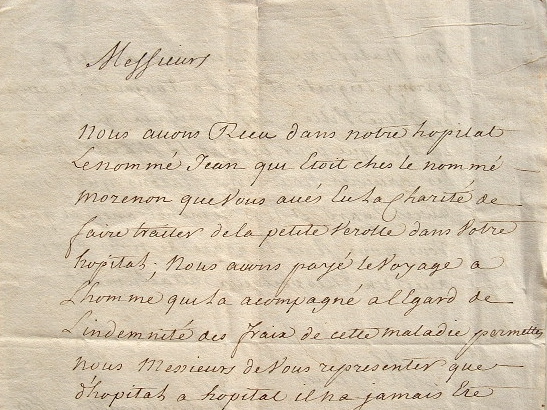 Messieurs
Nous auons Receu dans notre hopital
Le nommé Jean qui Etoit ches le nommé
morenon que Vous aués Eu La Charité de
faire traitter de la petite Verolle dans Votre
hopital; Nous auons payé le Voyage a
L'homme qui La acompagné a l'Egard de
L'indemnité des fraix de cette maladie permettes
nous Messieurs de Vous representer que
d'hopital a hopital il na jamais Ete